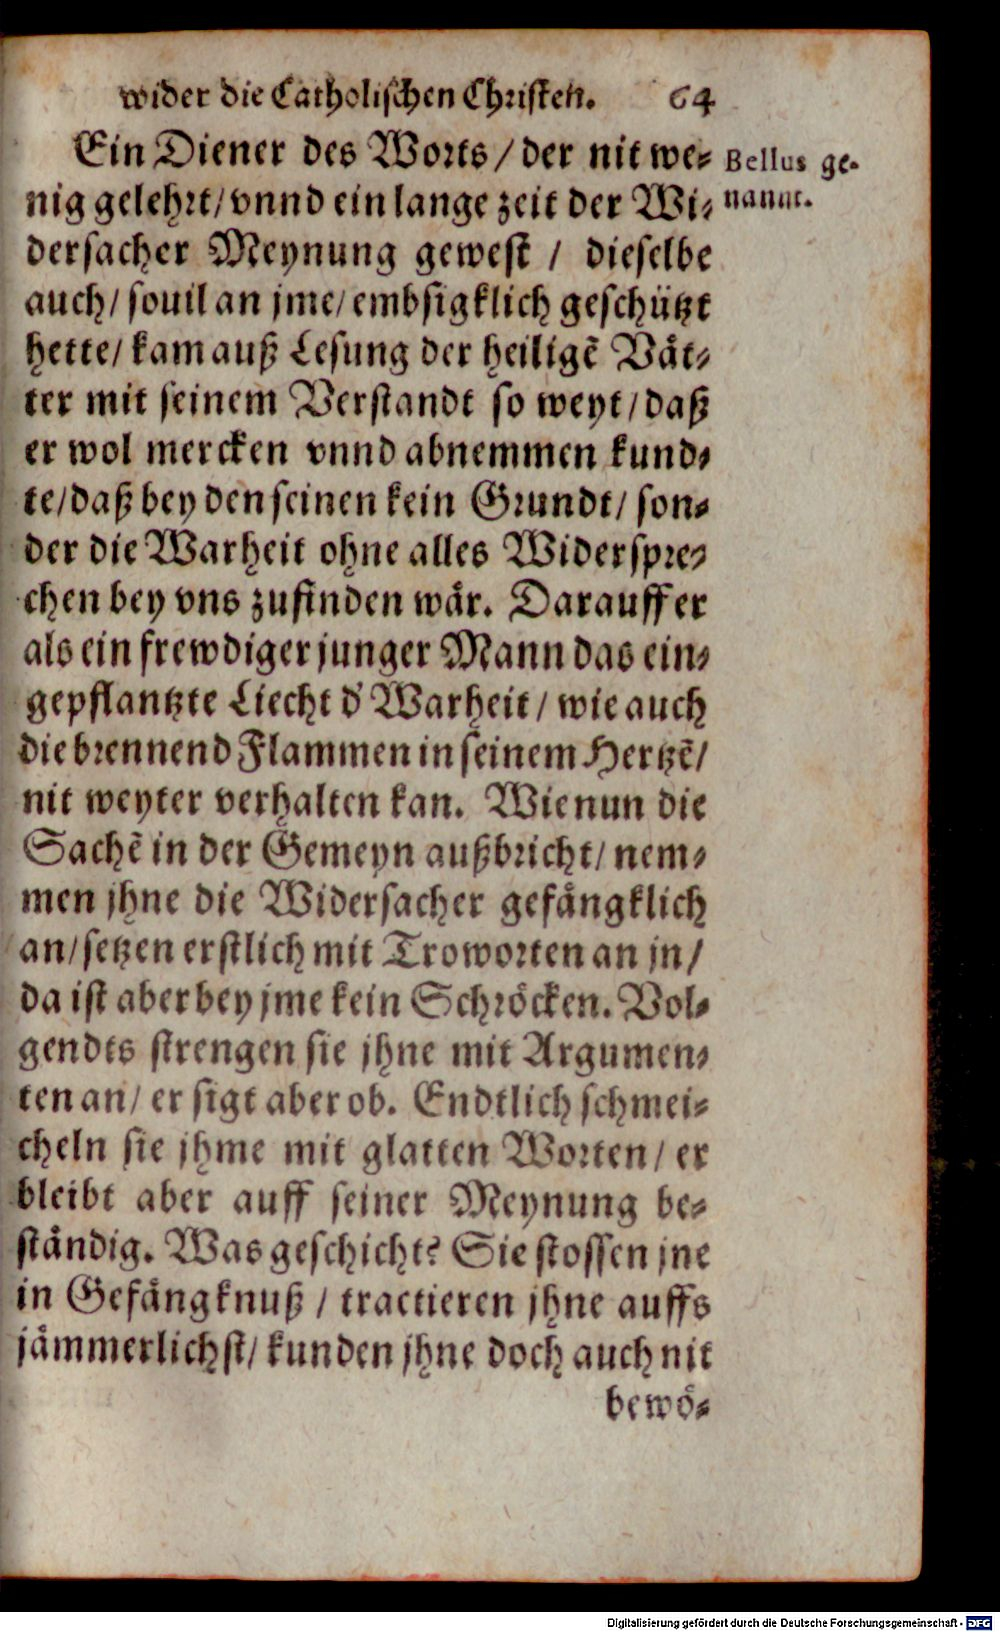 wider die Catholischen Christen. 64
Ein Diener des Worts / der nit we-
nig gelehrt / vnnd ein lange zeit der Wi-
dersacher Meynung gewest / dieselbe
auch / souil an jme / embsigklich geschützt
hette / kam auß Lesung der heiligẽ Vät-
ter mit seinem Verstandt so weyt / daß
er wol mercken vnnd abnemmen kund-
te / daß bey den seinen kein Grundt / son-
der die Warheit ohne alles Widerspre-
chen bey vns zufinden wår. Darauff er
als ein frewdiger junger Mann das ein-
gepflantzte Liecht d' Warheit / wie auch
die brennend Flammen in seinem Hertzẽ /
nit weyter verhalten kan. Wie nun die
Sachẽ in der Gemeyn außbricht / nem-
men jhne die Widersacher gefångklich
an / setzen erstlich mit Troworten an jn /
da ist aber bey jme kein Schröcken. Vol-
gendts strengen sie jhne mit Argumen-
ten an / er sigt aber ob. Endtlich schmei-
cheln sie jhme mit glatten Worten / er
bleibt aber auff seiner Meynung be-
ståndig. Was geschicht? Sie stossen jne
in Gefångknuß / tractieren jhne auffs
jåmmerlichst / kunden jhne doch auch nit
bewö-
Bellus ge-
nannt.
Digitalisierung gefördert durch die Deutsche Forschungsgemeinschaft - DFG